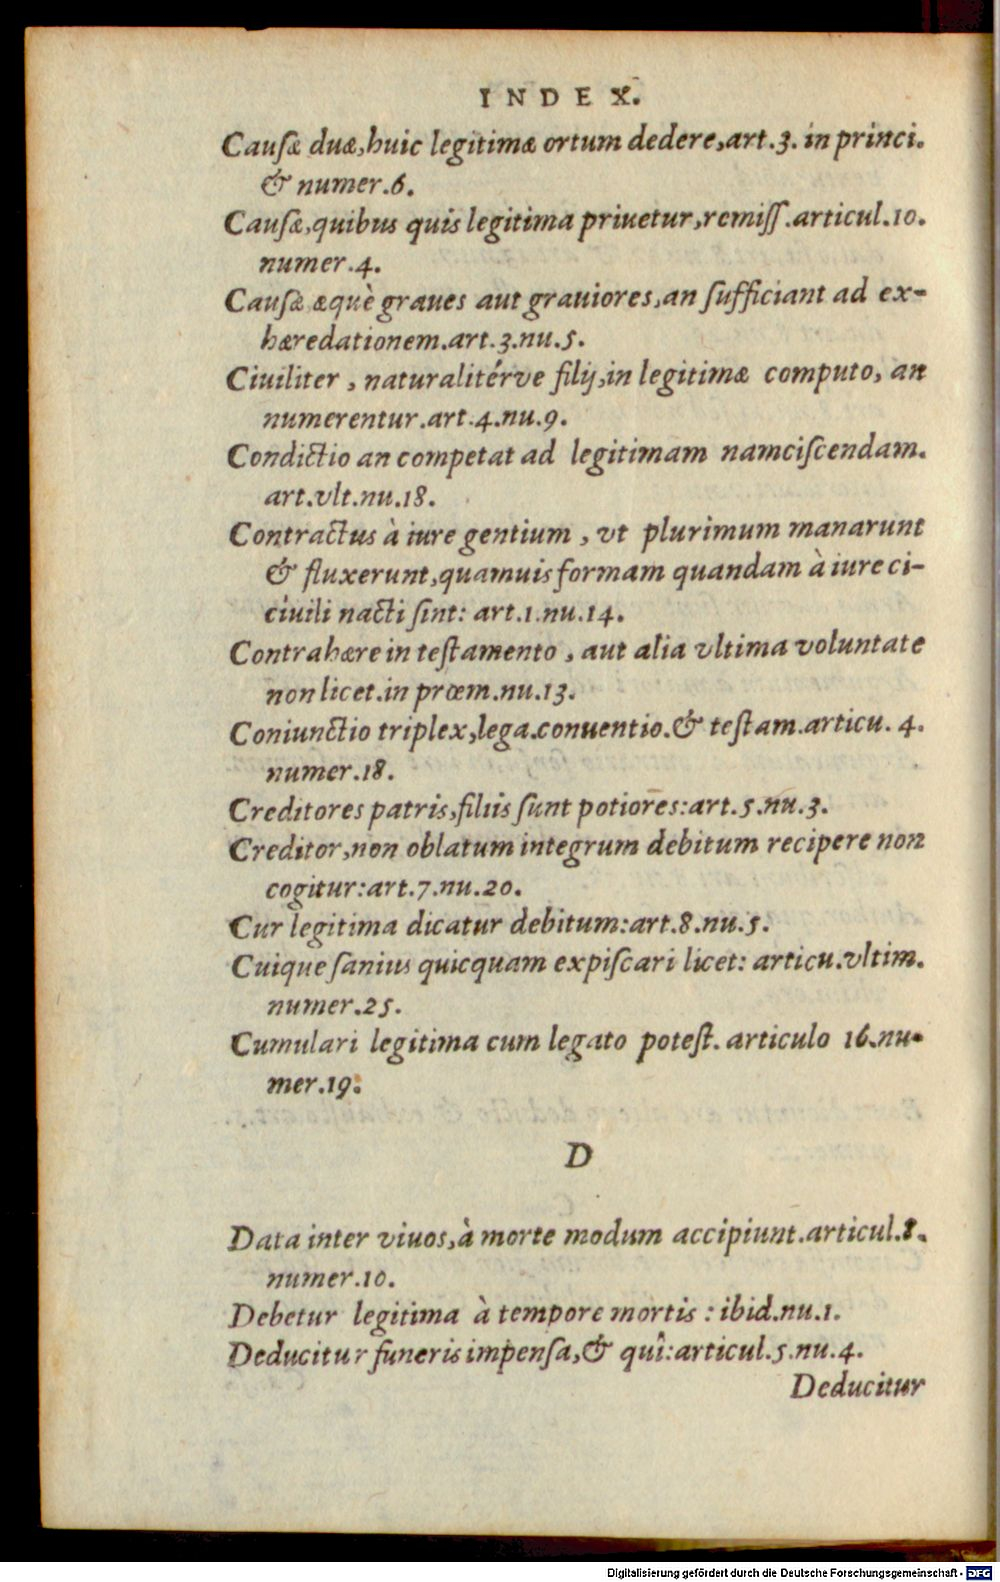 INDEX.
Causæ duæ, huic legitimæ ortum dedere, art. 3. in princi.
& numer. 6.
Causæ, quibus quis legitima priuetur, remiss. articul. 10.
numer. 4.
Causæ æquè graues aut grauiores, an sufficiant ad ex-
hæredationem. art. 3. nu. 5.
Ciuiliter, naturalitérve filij, in legitimæ computo, an
numerentur. art. 4. nu. 9.
Condictio an competat ad legitimam namciscendam.
art. vlt. nu. 18.
Contractus à iure gentium, vt plurimum manarunt
& fluxerunt, quamuis formam quandam à iure ci-
ciuili nacti sint: art. 1. nu. 14.
Contrahære in testamento, aut alia vltima voluntate
non licet. in prœm. nu. 13.
Coniunctio triplex, lega. conuentio. & testam. articu. 4.
numer. 18.
Creditores patris, filiis sunt potiores: art. 5. nu. 3.
Creditor, non oblatum integrum debitum recipere non
cogitur: art. 7. nu. 20.
Cur legitima dicatur debitum: art. 8. nu. 5.
Cuique sanius quicquam expiscari licet: articu. vltim.
numer. 25.
Cumulari legitima cum legato potest. articulo 16. nu-
mer. 19.
D
Data inter viuos, à morte modum accipiunt. articul. 8.
numer. 10.
Debetur legitima à tempore mortis: ibid. nu. 1.
Deducitur funeris impensa, & quî: articul. 5. nu. 4.
Deducitur
Digitalisierung gefördert durch die Deutsche Forschungsgemeinschaft - DFG